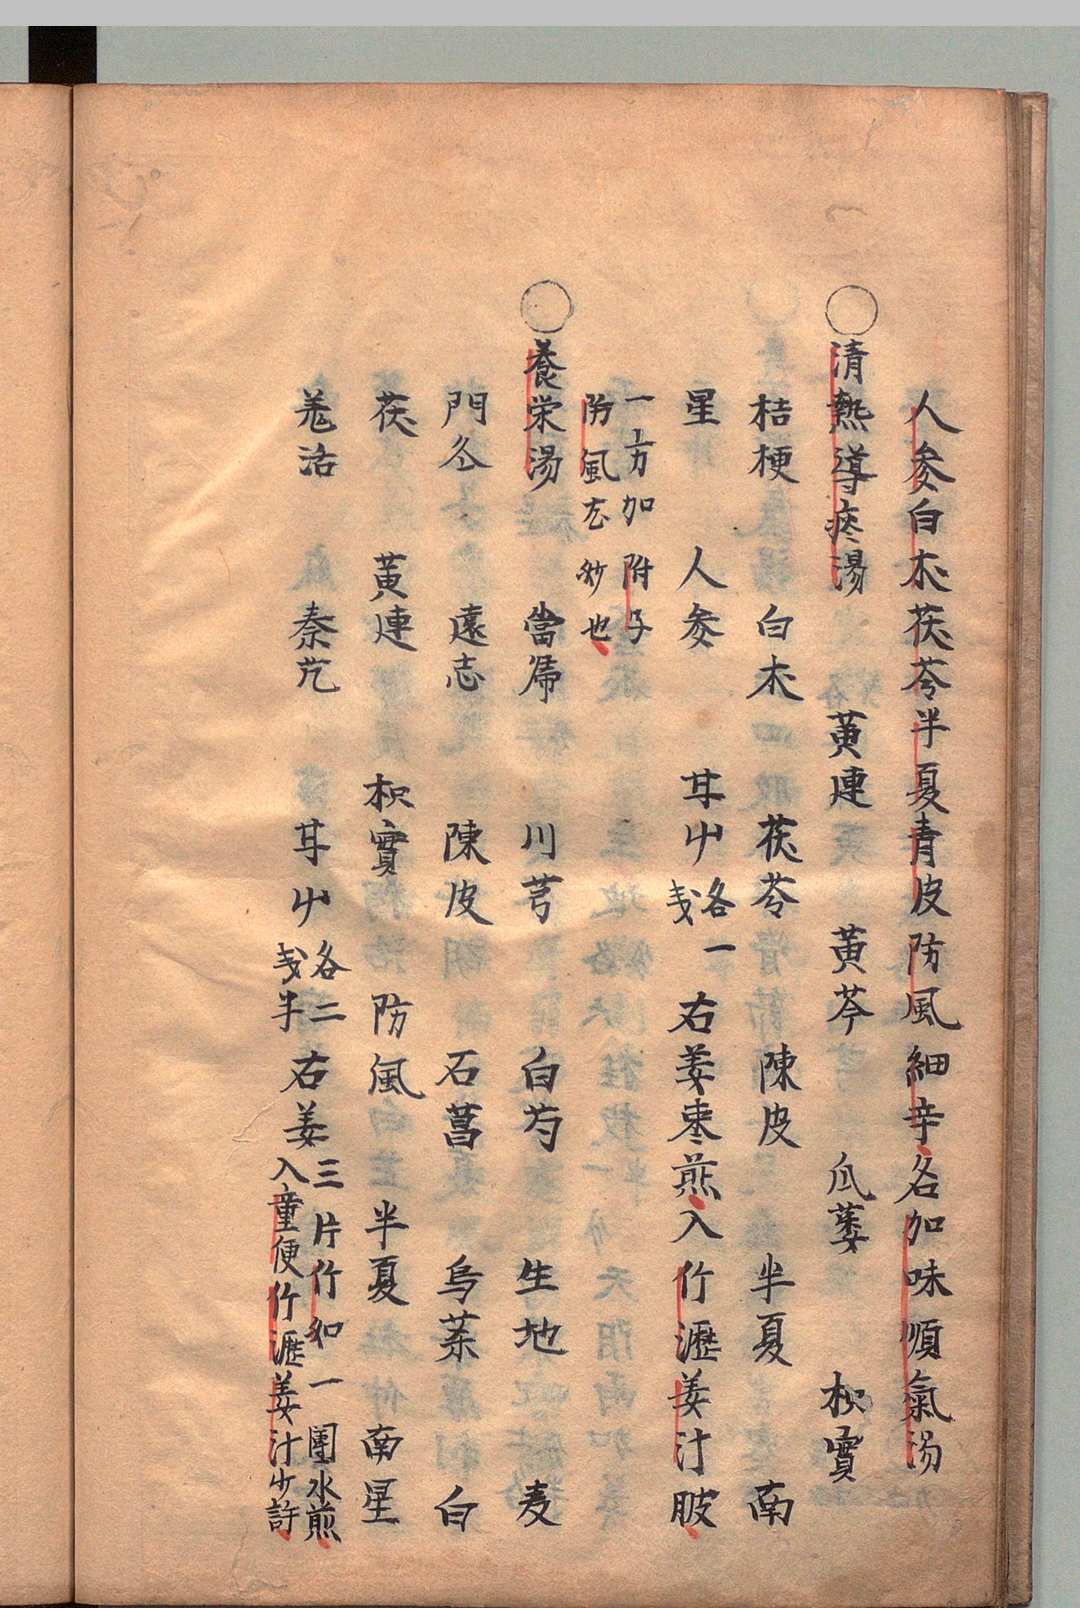 人参白朮茯苓半夏青皮防風細辛名加味順氣湯
○清熱導痰湯 黄連 黄芩 瓜蔞 枳實
桔梗 白朮 茯苓 陳皮 半夏 南
星 人参 甘艸 各一戔 右姜枣煎入竹瀝姜汁服
一方加附子
防風尤妙也
○養栄湯 當帰 川芎 白芍 生地 麦
門冬 遠志 陳皮 石菖 烏薬 白
茯 黄連 枳實 防風 半夏 南星
羌活 秦艽 甘艸 各二戔半 右姜三片竹如一團水煎
入童便竹瀝姜汁少許